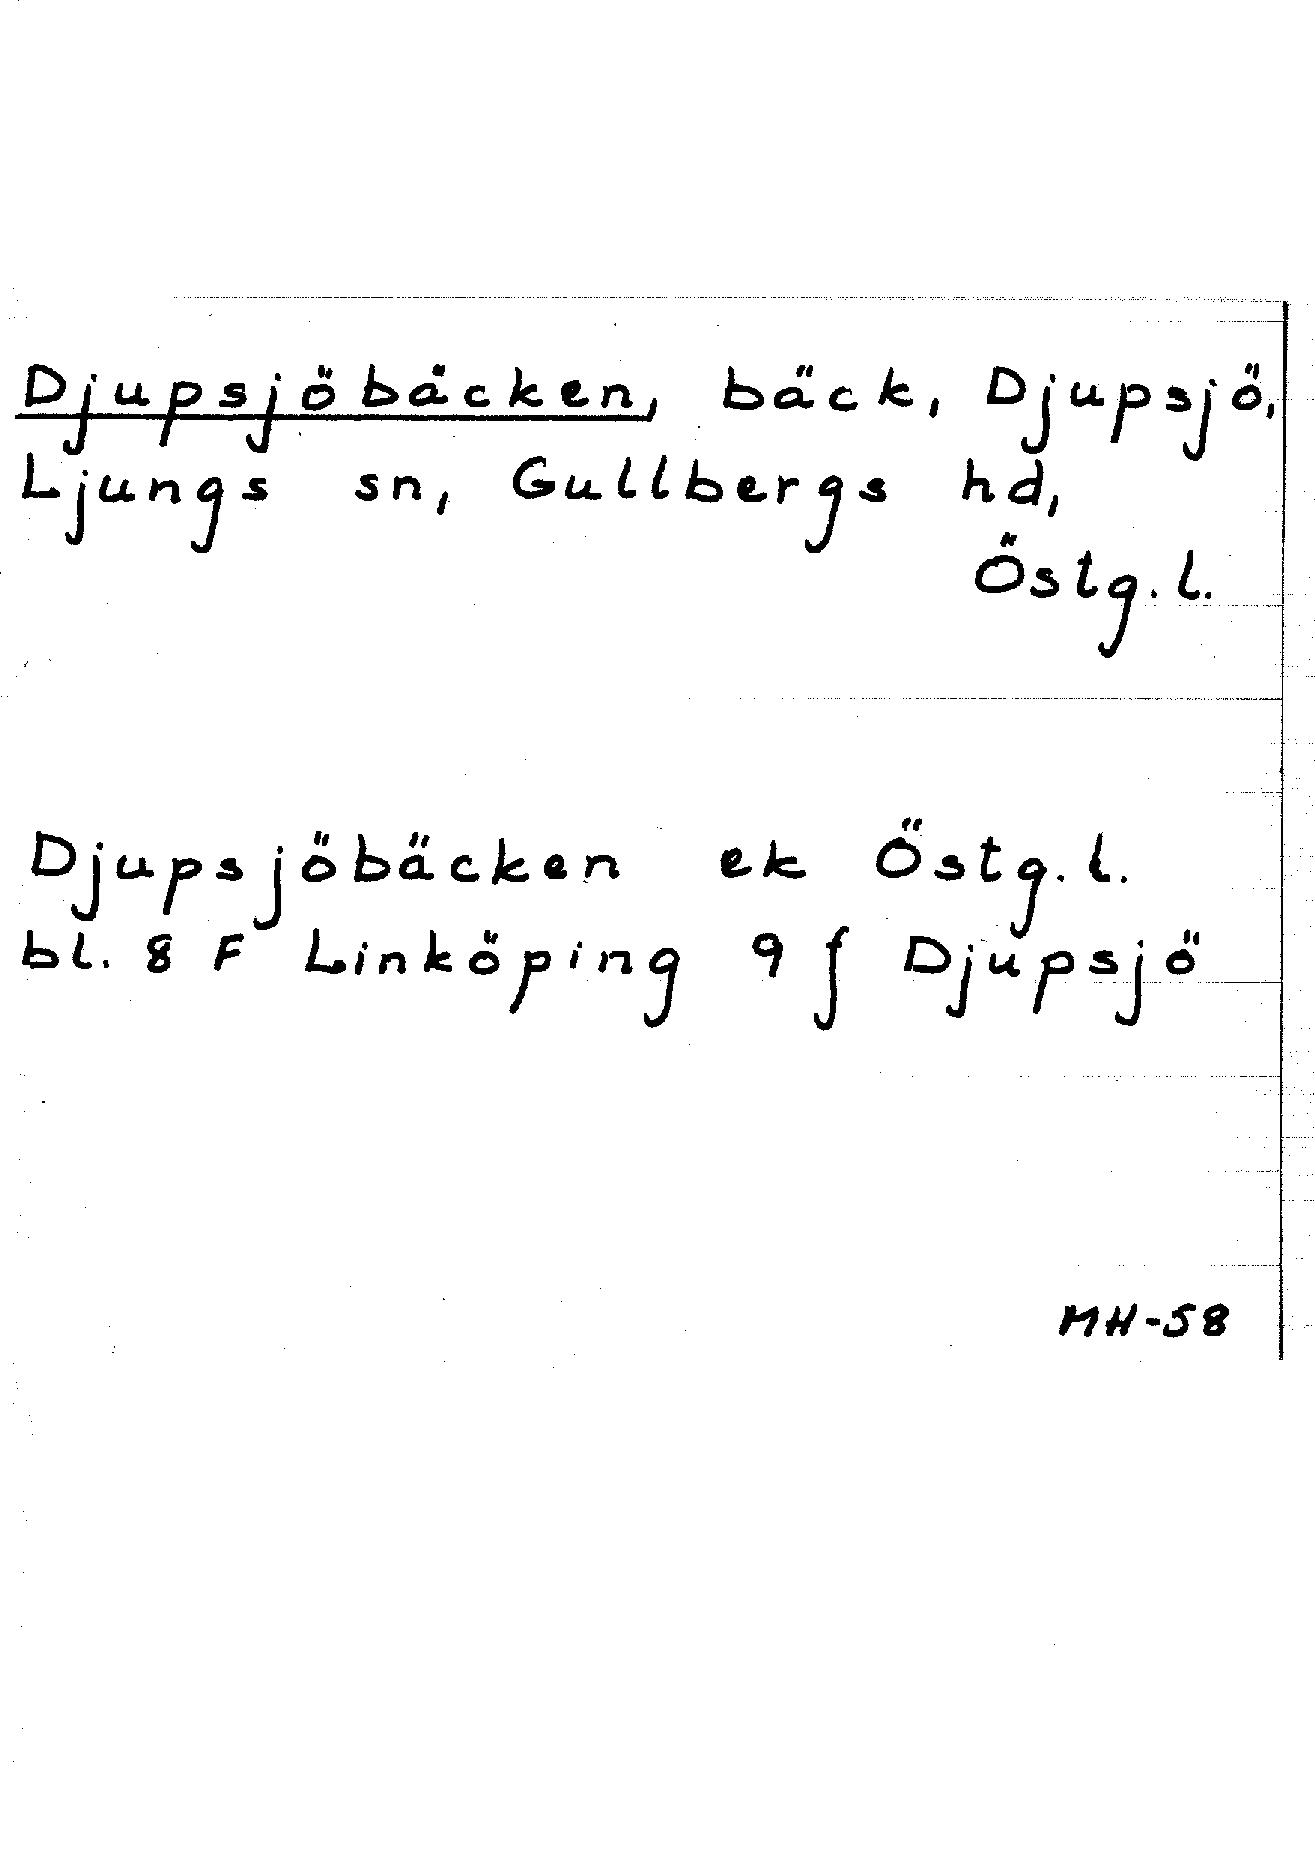 Djupsjöbäcken, bäck, Djupsjö,
Ljungs sn, Gullbergs hd,
Östg.l.
Djupsjöbäcken ek Östg.l.
bl. 8 F Linköping 9 f Djupsjö
MH-58